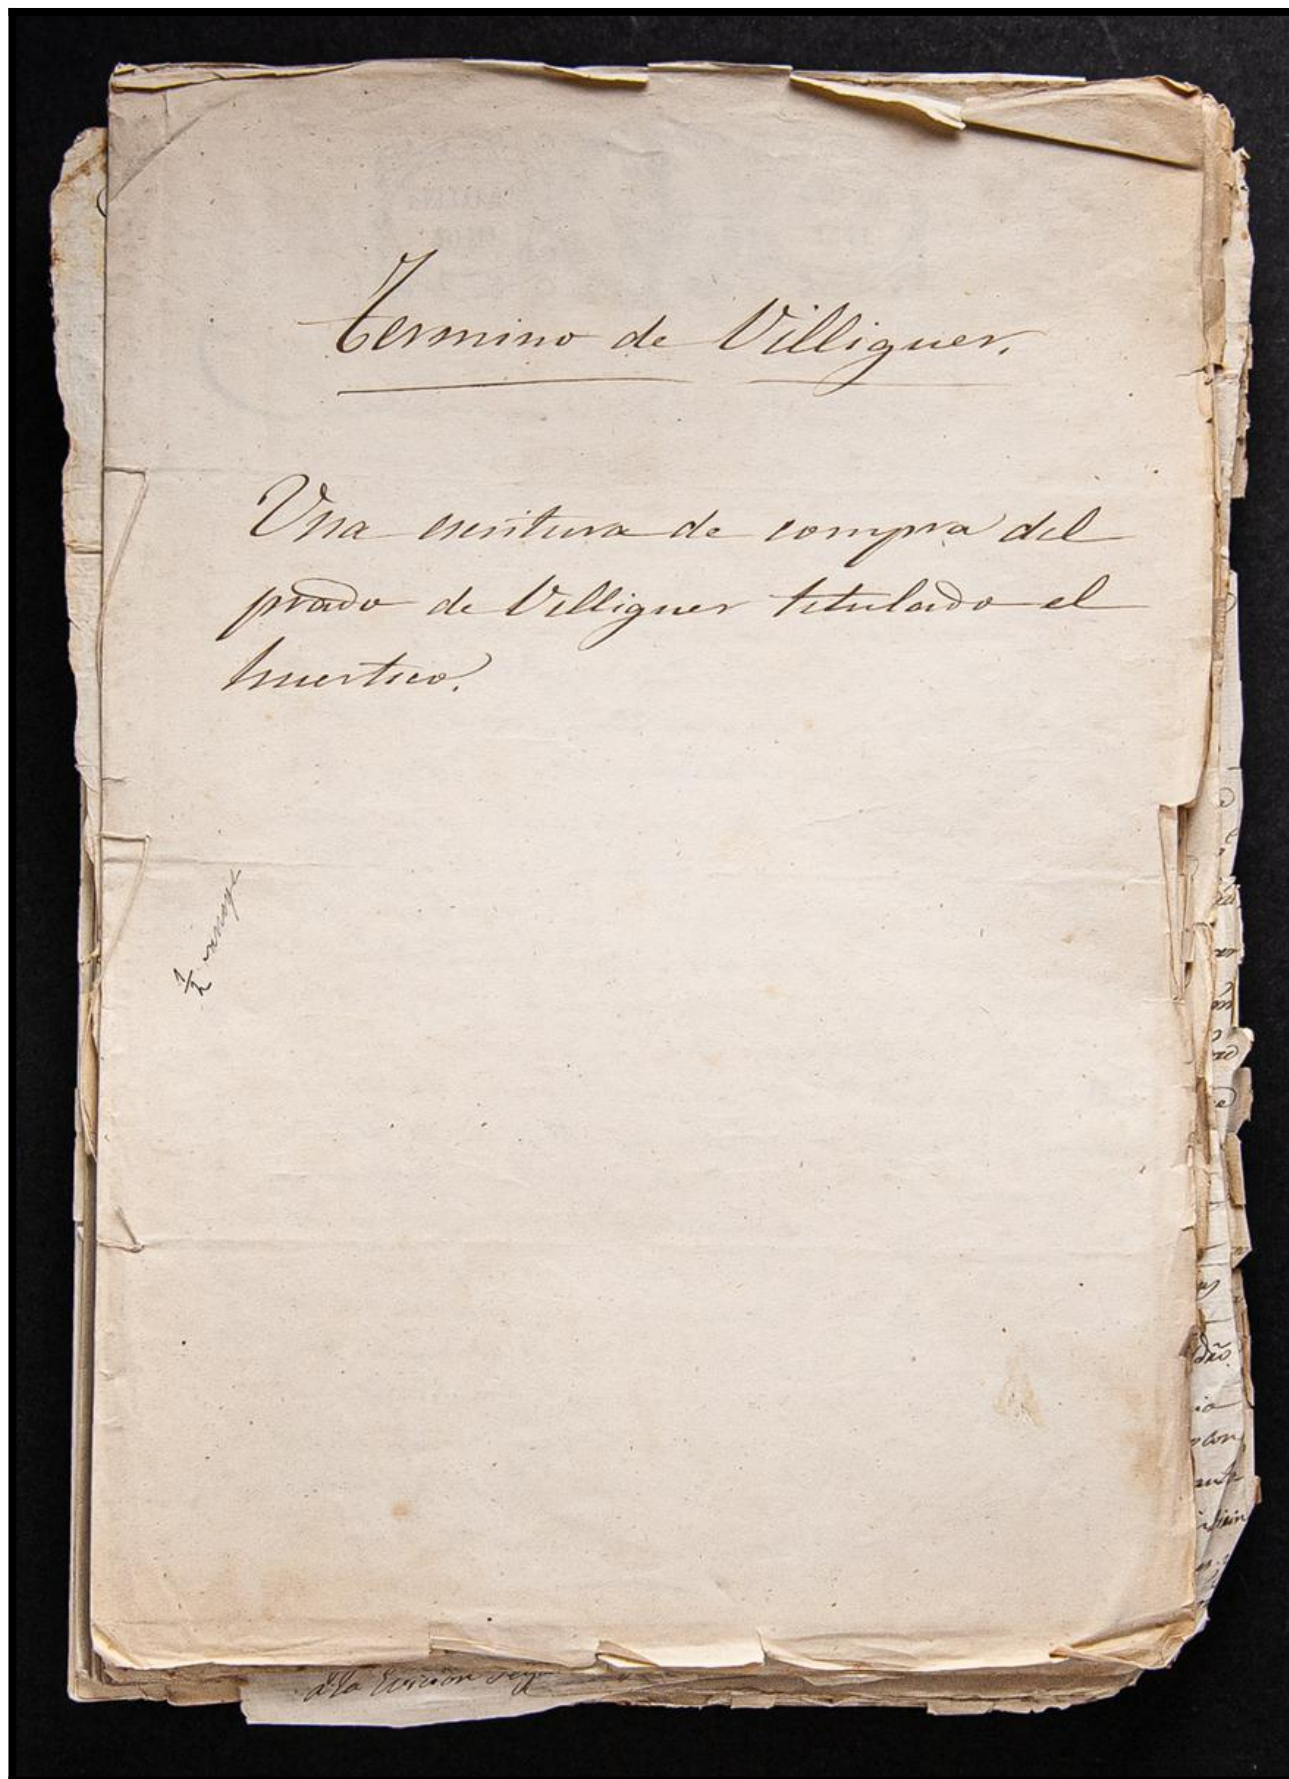 Termino de Villiguer.
Una escritura de compra del
prado de Villiguer titulado el
huertico.
1/2
á la
dño.
con